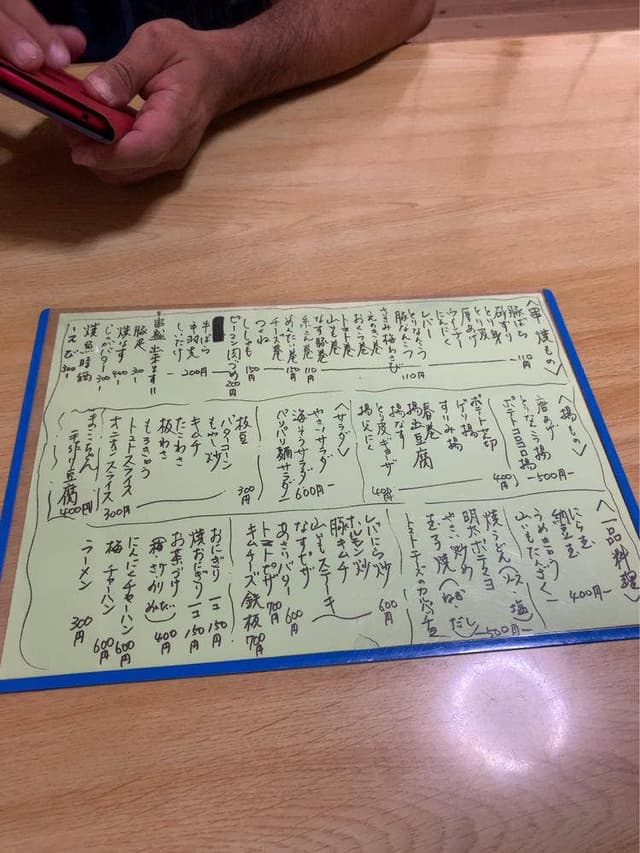 〈串焼もの〉
豚ばら
砂ずり
とり身
とり皮
厚あげ
ウインナー
にんにく 110円
レバー
とりなんこつ
豚なんこつ
ささみ梅わさび 110円
えのき巻
おくら巻
トマト巻
山いも巻
なす豚巻
糸こん巻 110円
めんたい巻 150円
チーズ巻
つくね
ししゃも 150円
ピーマン肉づめ 200円
牛ばら
手羽先
しいたけ 200円
串盛出来ます!!
豚足
焼なす 400-
じゃがバター 300-
焼魚時価
えび 300-
〈揚もの〉
唐あげ
とりなんこつ揚
ポテトコロコロ揚 500円-
ポテト天切
ごぼう揚
すりみ揚 400円
春巻
揚出豆腐
揚なす
とり皮ギョーザ
揚にんにく 400円
〈サラダ〉
やさいサラダ
海そうサラダ
ペリパリ麺サラダ 600円
枝豆 300円
バターコーン
もやし炒
キムチ
たこわさ
板わさ
もろきゅう
トマトスライス
オニオンスライス 300円
まこちゃん
手作り豆腐 400円
〈一品料理〉
にら玉
納豆玉
うめきゅう
山いもたんざく 400円-
焼うどん(ソース・塩)
明太ポテマヨ
やさい炒め
玉子焼(ねぎ だし) 500円-
レバにら炒
ホルモン炒
豚キムチ 600円
山いもステーキ
あさりバター 600円
なすピザ
トマトピザ 700円
キムチーズ鉄板 700円
おにぎり一コ 150円
焼おにぎり一コ 150円
お茶づけ 400円
にんにくチャーハン 600円
梅チャーハン 600円
ラーメン 300円